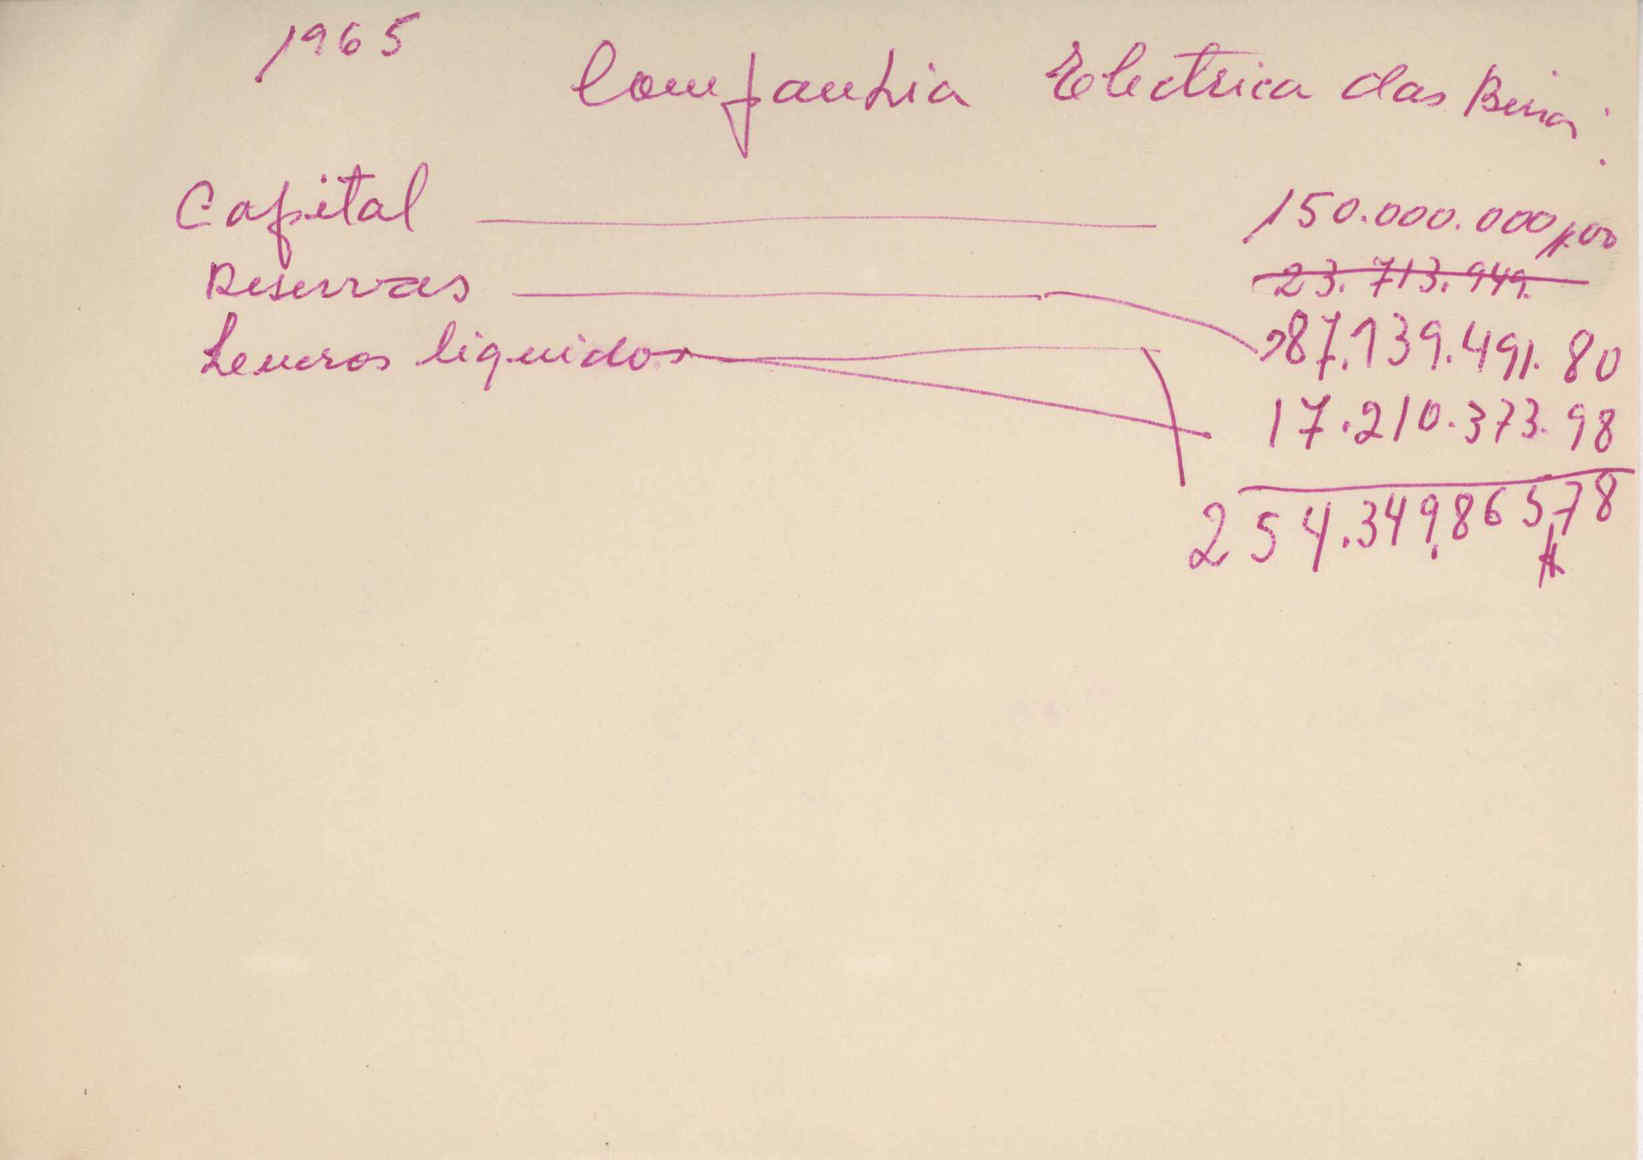 1965
Companhia Electrica das Beiras
Capital 150.000.000$00
23.713.949.
Reservas 87.139.491.80
Lucros liquidos 17.210.373.98
254.349.865$78